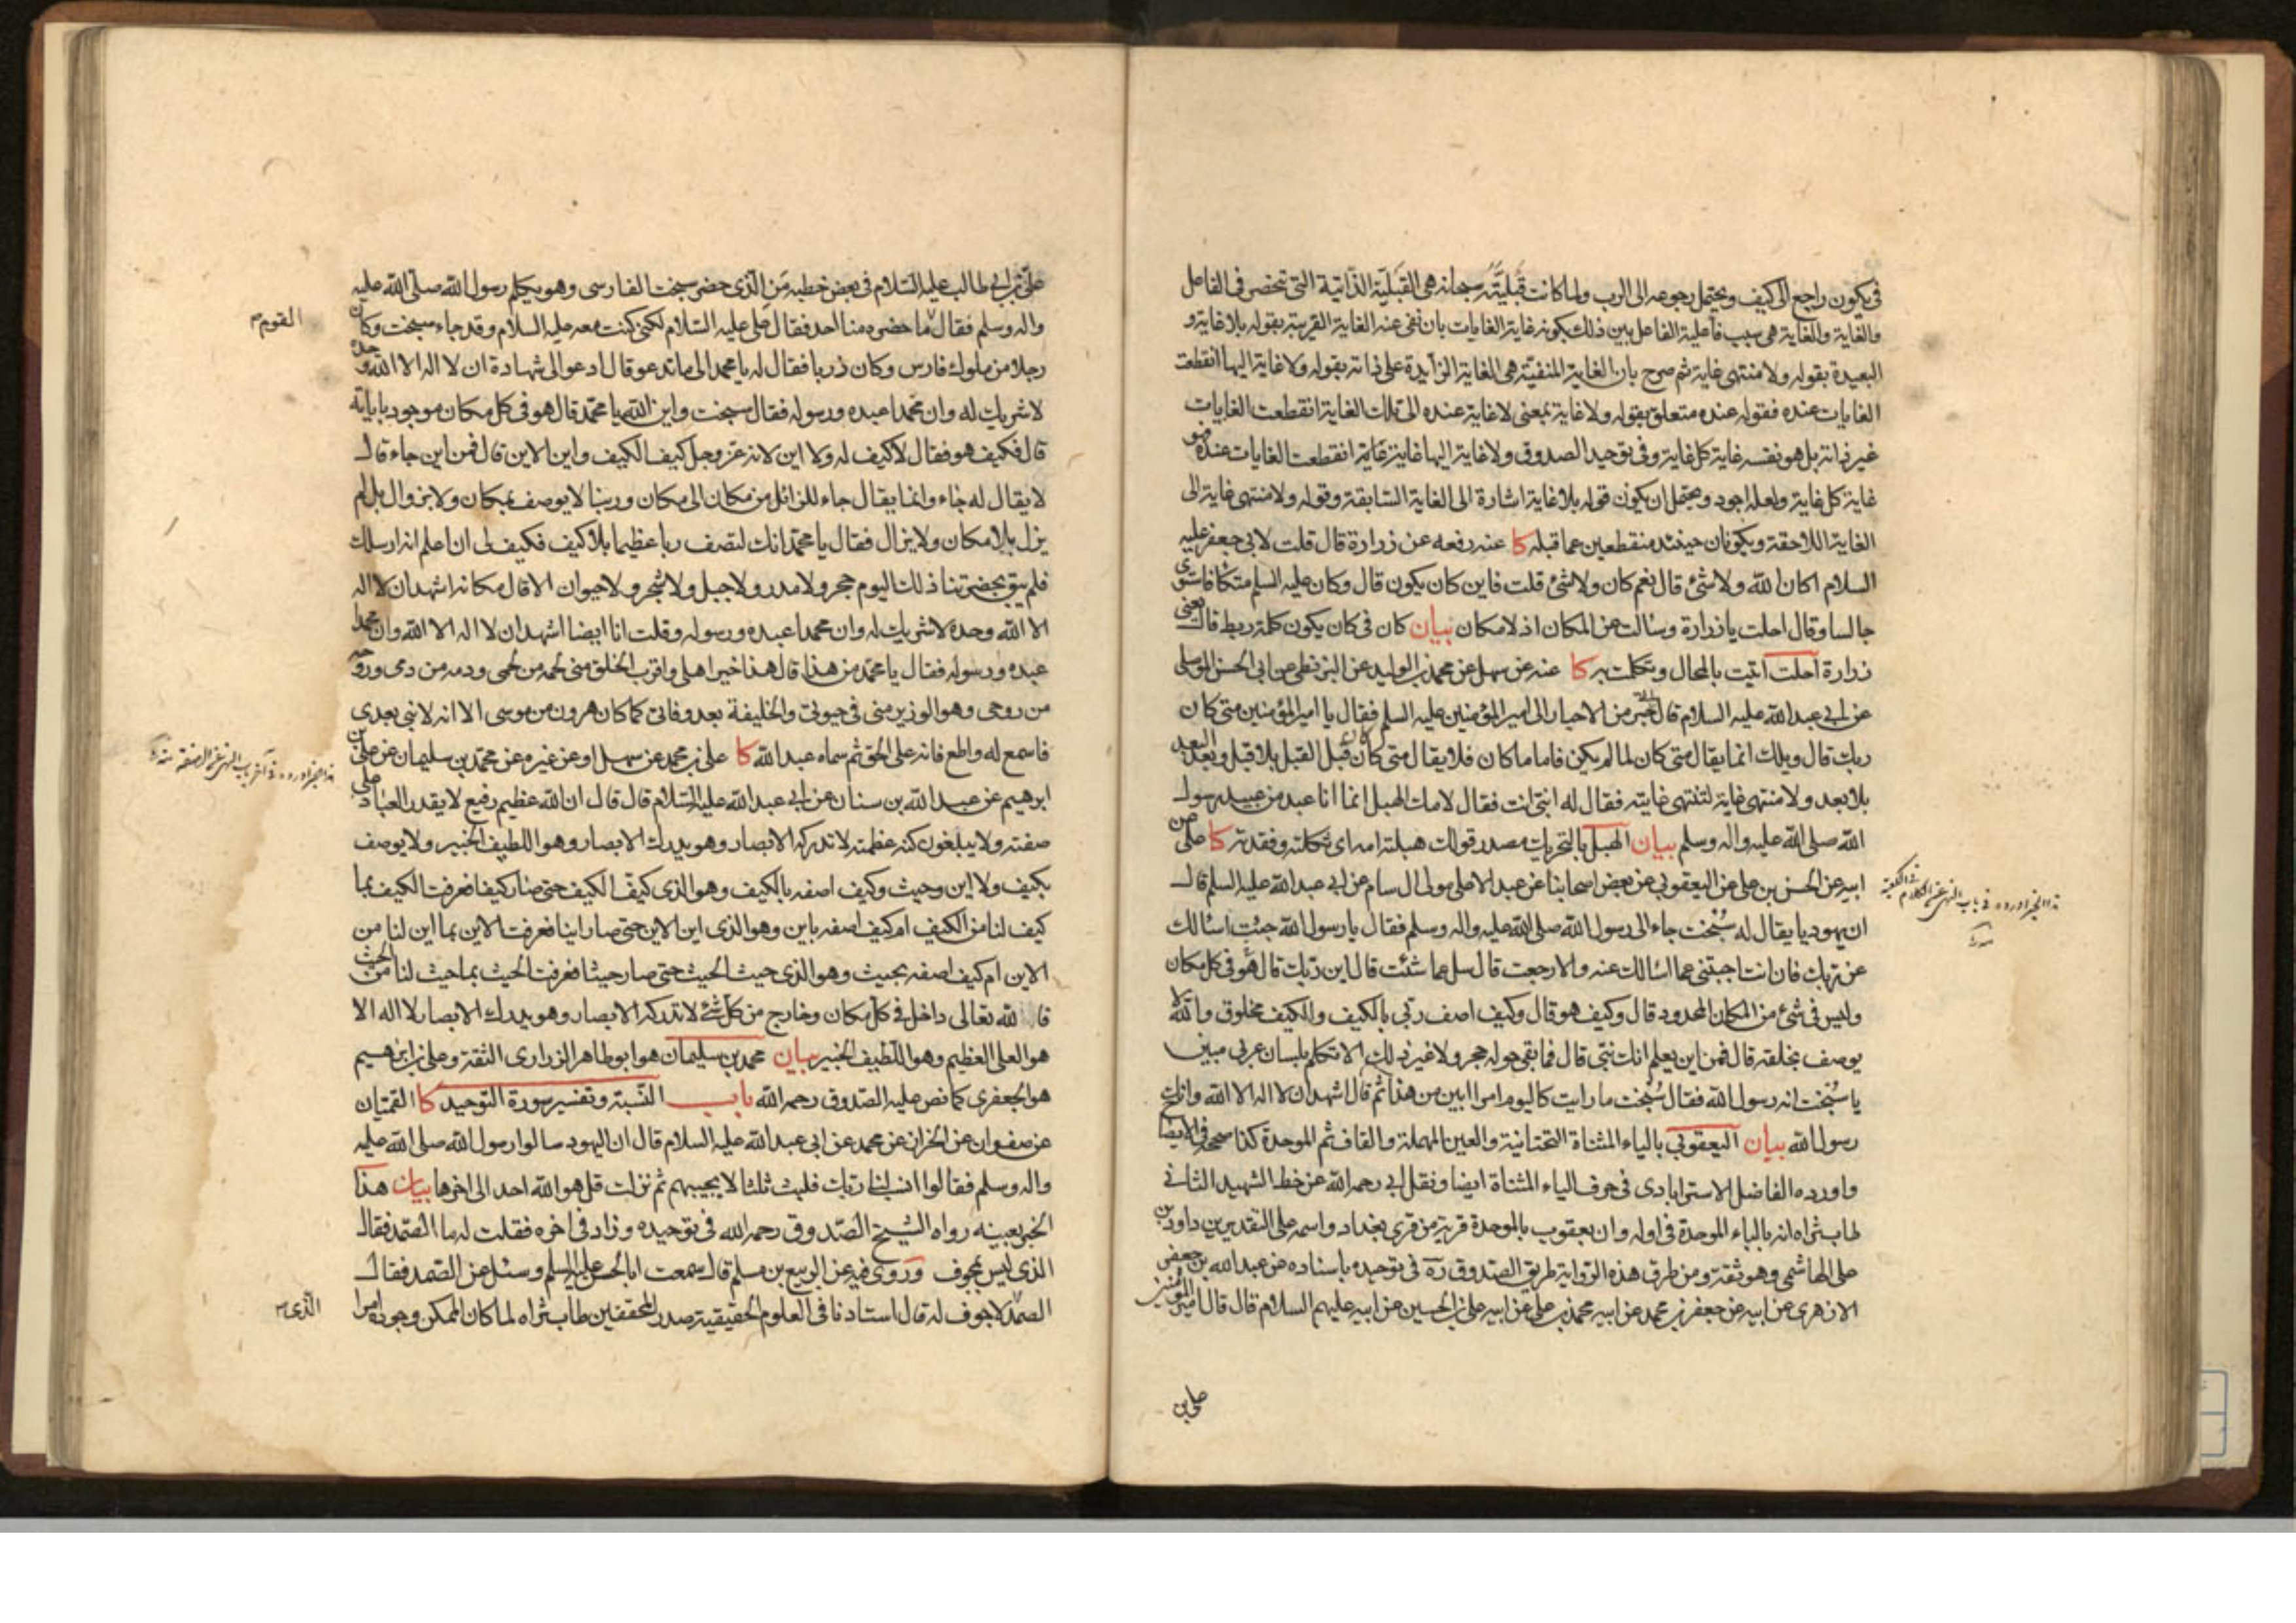 فى يكون راجع الى كيف ويحتمل رجوعه الى الرب ولما كانت قبليّته سبحانه هى القبليّة الذّاتية التى تنحصر فى الفاعل
والغاية والغاية هى سبب فاعلية الفاعل بين ذلك بكونه غاية الغايات بان نفى عنه الغاية القريبة بقوله بلا غاية و
البعيدة بقوله ولا منتهى غاية ثم صرح بان الغاية المنفيّة هى الغاية الزّايدة على ذاته بقوله ولا غاية اليها انقطعت
الغايات عنده فقوله عنده متعلق بقوله ولا غاية بمعنى لا غاية عنده الى تلك الغاية انقطعت الغايات
غير ذاته بل هو نفسه غاية كل غاية وفى توحيد الصدوق ولا غاية اليها غاية انقطعت الغايات عنده فهو
غاية كل غاية ولعله اجود ويحتمل ان يكون قوله بلا غاية اشارة الى الغاية السّابقة وقوله ولا منتهى غاية الى
الغاية اللاحقة ويكونان حينئذ منقطعين عما قبله كا عنه رفعه عن زرارة قال قلت لابى جعفر عليه
السلام اكان الله ولا شئ قال نعم كان ولا شئ قلت فاين كان يكون قال وكان عليه السلم متكئا فاستوى
جالسا وقال احلت يا زرارة وسالت عن المكان اذ لا مكان بيان كان فى كان يكون كلمة ربط قال يعنى
زرارة احلت اتيت بالمحال وتكلمت به كا عنه عن سهل عن محمد بن الوليد عن البزنطى عن ابى الحسن الموصلى
عن ابى عبد الله عليه السلام قال اتى حبر من الاحبار الى امير المؤمنين عليه السلم فقال يا امير المؤمنين متى كان
ربك قال ويلك انما يقال متى كان لما لم يكن فاما ما كان فلا يقال متى كان كان قبل القبل بلا قبل وبعد البعد
بلا بعد ولا منتهى غاية لتنتهى غايته فقال له انبى انت فقال لامك الهبل انما انا عبد من عبيد رسول
الله صلى الله عليه واله وسلم بيان الهبل بالتحريك مصدر قولك هبلته امه اى ثكلته وفقدته كا على عن
ابيه عن الحسن بن على عن اليعقوبى عن بعض اصحابنا عن عبد الاعلى مولى ال سام عن ابى عبد الله عليه السلم قال
ان يهوديا يقال له سُبُخت جاء الى رسول الله صلى الله عليه واله وسلم فقال يا رسول الله جئت اسالك
عن ربك فان انت اجبتنى عما اسالك عنه والا رجعت قال سل عما شئت قال اين ربّك قال هو فى كل مكان
وليس فى شئ من المكان المحدود قال وكيف هو قال وكيف اصف ربّى بالكيف والكيف مخلوق والله لا
يوصف بخلقه قال فمن اين يعلم انك نبىّ قال فما بقى حوله حجر ولا غير ذلك الا تكلم بلسان عربى مبين
يا سُبُخت انه رسول الله فقال سُبُخت ما رايت كاليوم امرا ابين من هذا ثم قال اشهد ان لا اله الا الله وانك
رسول الله بيان اليعقوبى بالياء المثناة التحتانية والعين المهملة والقاف ثم الموحدة كذا صححه فى الايضاح
واورده الفاضل الاسترابادى فى حرف الياء المثناة ايضا ونقل ابى رحمه الله عن خط الشهيد الثانى
طاب ثراه انه بالباء الموحدة فى اوله وان بعقوب بالموحدة قرية من قرى بغداد واسمه على التقديرين داود بن
على الهاشمى وهو ثقة ومن طرق هذه الرّواية طريق الصّدوق ره فى توحيده باسناده عن عبد الله بن جعفر
الازهرى عن ابيه عن جعفر بن محمد عن ابيه محمد بن على عن ابيه على بن الحسين عن ابيه عليهم السلام قال قال امير المؤمنين
على بن
على بن ابى طالب عليه السّلام فى بعض خطبه مَن الّذى حضر سبخت الفارسى وهو يكلم رسول الله صلى الله عليه
واله وسلم فقال ما حضره منا احد فقال على عليه السّلام لكنى كنت معه عليه السلام وقد جاءه سبخت وكان
القوم
رجلا من ملوك فارس وكان ذربا فقال له يا محمد الى ما تدعو قال ادعو الى شهادة ان لا اله الا الله وحده
لا شريك له وان محمدا عبده ورسوله فقال سبخت واين الله يا محمّد قال هو فى كل مكان موجود باياته
قال فكيف هو فقال لا كيف له ولا اين لانه عز وجل كيف الكيف واين الاين قال فمن اين جاء قال
لا يقال له جاء وانما يقال جاء للزائل من مكان الى مكان وربنا لا يوصف بمكان ولا بزوال بل لم
يزل بلا مكان ولا يزال فقال يا محمّد انك لتصف ربا عظيما بلا كيف فكيف لى ان اعلم انه ارسلك
فلم يبق بحضرتنا ذلك اليوم حجر ولا مدر ولا جبل ولا شجر ولا حيوان الا قال مكانه اشهد ان لا اله
الا الله وحده لا شريك له وان محمدا عبده ورسوله وقلت انا ايضا اشهد ان لا اله الا الله وان محمدا
عبده ورسوله فقال يا محمّد من هذا قال هذا خير اهلى واقرب الخلق منى لحمه من لحمى ودمه من دمى وروحه
من روحى وهو الوزير منى فى حيوتى والخليفة بعد وفاتى كما كان هرون من موسى الا انه لا نبى بعدى
فاسمع له واطع فانه على الحق ثم سماه عبد الله كا على بن محمد عن سهل او عن غيره عن محمّد بن سليمان عن على بن
ابرهيم عن عبد الله بن سنان عن ابى عبد الله عليه السّلام قال قال ان الله عظيم رفيع لا يقدر العباد على
صفته ولا يبلغون كنه عظمته لا تدركه الابصار وهو يدرك الابصار وهو اللطيف الخبير ولا يوصف
بكيف ولا اين وحيث وكيف اصفه بالكيف وهو الذى كيف الكيف حتى صار كيفا فعرفت الكيف بما
كيف لنا من الكيف ام كيف اصفه باين وهو الذى اين الاين حتى صار اينا فعرفت الاين بما اين لنا من
الاين ام كيف اصفه بحيث وهو الذى حيث الحيث حتى صار حيثا فعرفت الحيث بما حيث لنا من الحيث
فالله تعالى داخل فى كل مكان وخارج من كل شئ لا تدركه الابصار وهو يدرك الابصار لا اله الا
هو العلى العظيم وهو اللّطيف الخبير بيان محمد بن سليمان هو ابو طاهر الزرارى الثقة وعلى بن ابرهيم
هو الجعفرى كما نص عليه الصّدوق رحمه الله باب النّسبة وتفسير سورة التوحيد كا القميّان
عن صفوان عن الخراز عن محمد عن ابى عبد الله عليه السلام قال ان اليهود سالوا رسول الله صلى الله عليه
واله وسلم فقالوا انسب لنا ربّك فلبث ثلثا لا يجيبهم ثم نزلت قل هو الله احد الى اخرها بيان هذا
الخبر بعينه رواه الشيخ الصّدوق رحمه الله فى توحيده وزاد فى اخره فقلت له ما الصّمد فقال
الذى ليس بمجوف وروى فيه عن الربيع بن مسلم قال سمعت ابا الحسن عليه السلم وسئل عن الصّمد فقال
الصّمد لا جوف له قال استادنا فى العلوم الحقيقية صدر المحققين طاب ثراه لما كان الممكن وجوده امرا
الّذى